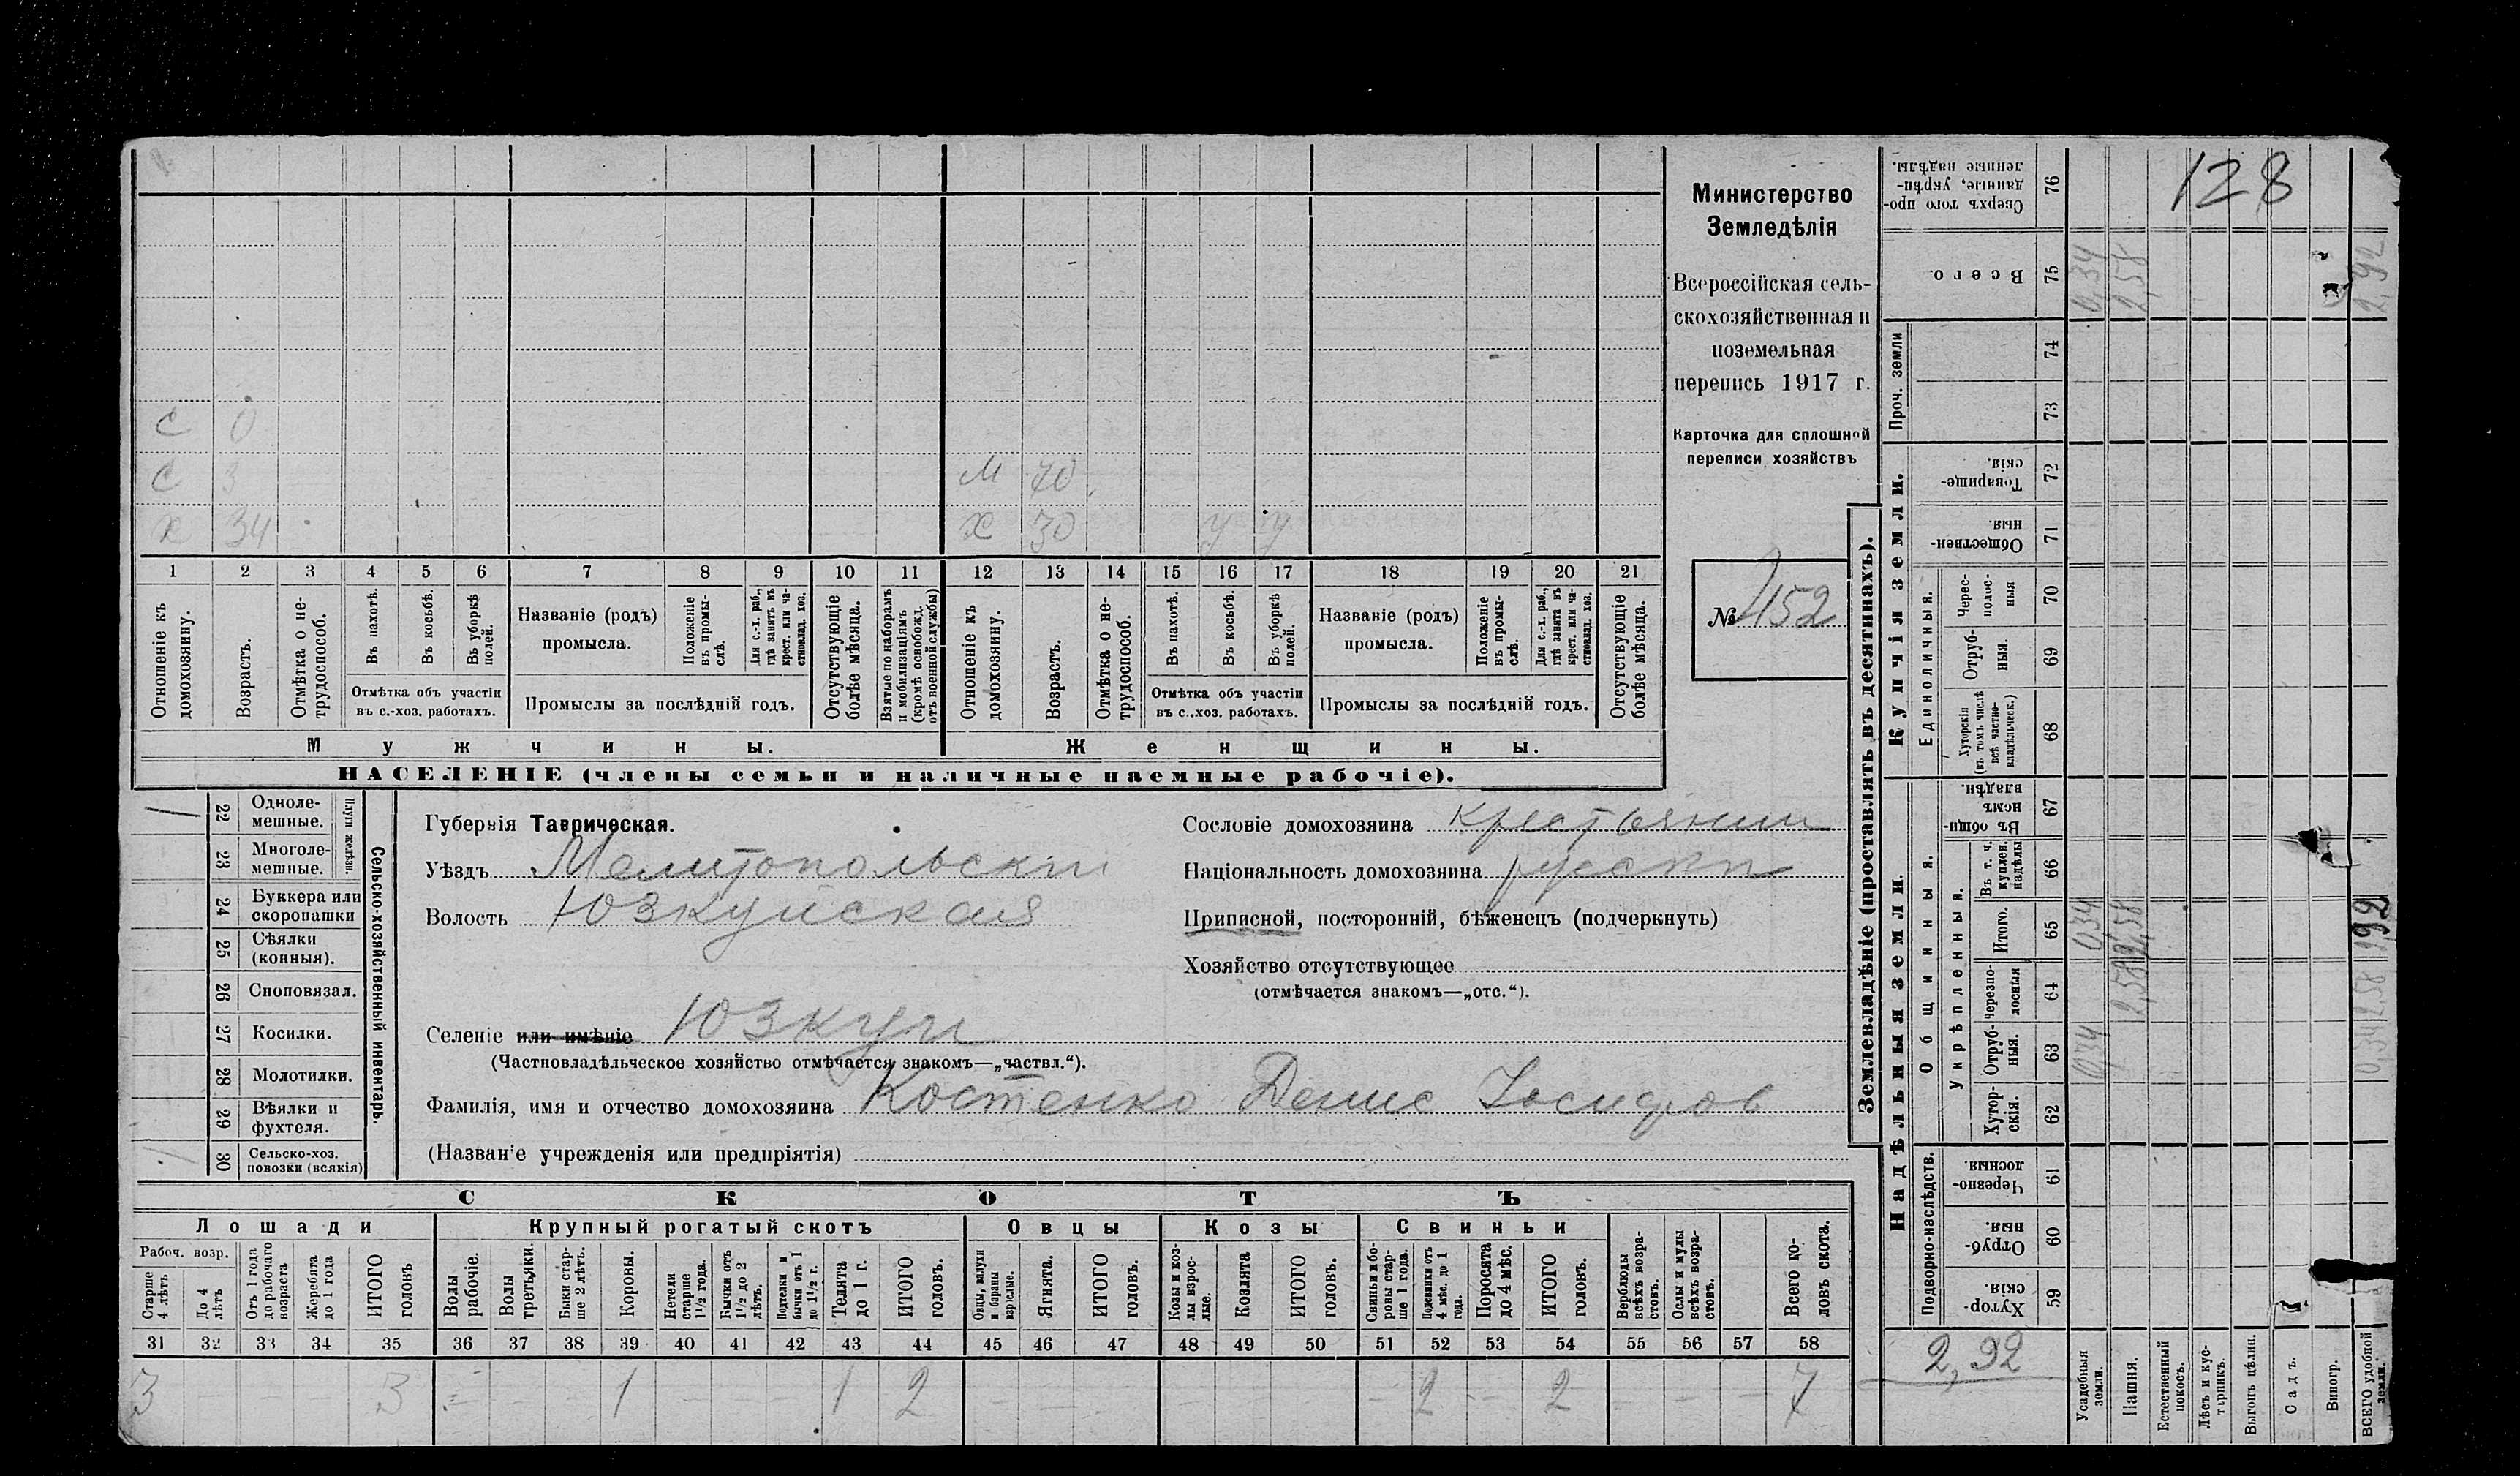 128
Министерство
Земледѣлія
Всероссійская сель-
скохозяйственная и
поземельная
перепись 1917 г.
Карточка для сплошной
переписи хозяйствъ
№ 452
С 0
С 3 М 70
Х 34 Х 30 у у
1 2 3 4 5 6 7 8 9 10 11 12 13 14 15 16 17 18 19 20 21
Отношеніе къ домохозяину.
Возрастъ.
Отмѣтка о не-трудоспособ.
Въ пахотѣ.
Въ косьбѣ.
Въ уборкѣ полей.
Отмѣтка объ участіи
въ с.-хоз. работахъ.
Названіе (родъ)
промысла.
Положеніе въ промы-слѣ.
Для с.-х. раб., гдѣ занятъ въ крест. или ча-стновлад. хоз.
Промыслы за послѣдній годъ.
Отсутствующіе болѣе мѣсяца.
Взятые по наборамъ и мобилизаціямъ (кромѣ освобожд. отъ военной службы)
Отношеніе къ домохозяину.
Возрастъ.
Отмѣтка о не-трудоспособ.
Въ пахотѣ.
Въ косьбѣ.
Въ уборкѣ полей.
Отмѣтка объ участіи
въ с.-хоз. работахъ.
Названіе (родъ)
промысла.
Положеніе въ промы-слѣ.
Для с.-х. раб., гдѣ занятъ въ крест. или ча-стновлад. хоз.
Промыслы за послѣдній годъ.
Отсутствующіе болѣе мѣсяца.
Мужчины. Женщины.
НАСЕЛЕНІЕ (члены семьи и наличные наемные рабочіе).
Сельско-хозяйственный инвентарь.
Плуги желѣзн.
22 Одноле-мешные.
23 Многоле-мешные.
24 Буккера или скоропашки
25 Сѣялки (конныя).
26 Сноповязал.
27 Косилки.
28 Молотилки.
29 Вѣялки и фухтеля.
30 Сельско-хоз. повозки (всякія)
Губернія Таврическая.
Уѣздъ Мелитопольскій
Волость Юзкуйская
Селеніе или имѣніе Юзкуи
(Частновладѣльческое хозяйство отмѣчается знакомъ—„частвл.“).
Фамилія, имя и отчество домохозяина Костенко Денис Іосифов
(Названіе учрежденія или предпріятія)
Сословіе домохозяина крестьянин
Національность домохозяина русскій
Приписной, посторонній, бѣженецъ (подчеркнуть)
Хозяйство отсутствующее
(отмѣчается знакомъ—„отс.“).
СКОТЪ
Лошади Крупный рогатый скотъ Овцы Козы Свиньи
Рабоч. возр.
Старше 4 лѣтъ
До 4 лѣтъ
Отъ 1 года до рабочаго возраста
Жеребята до 1 года
ИТОГО головъ
Волы рабочіе.
Волы третьяки.
Быки стар-ше 2 лѣтъ.
Коровы.
Нетели старше 1½ года.
Бычки отъ 1½ до 2 лѣтъ.
Подтелки и бычки отъ 1 до 1½ г.
Телята до 1 г.
ИТОГО головъ.
Овцы, валухи и бараны взрослые.
Ягнята.
ИТОГО головъ.
Козы и коз-лы взрос-лые.
Козлята
ИТОГО головъ.
Свиньи и бо-ровы стар-ше 1 года.
Подсвинки отъ 4 мѣс. до 1 года.
Поросята до 4 мѣс.
ИТОГО головъ.
Верблюды всѣхъ возра-стовъ.
Ослы и мулы всѣхъ возра-стовъ.
Всего го-ловъ скота.
31 32 33 34 35 36 37 38 39 40 41 42 43 44 45 46 47 48 49 50 51 52 53 54 55 56 57 58
3 — — — 3 — — — 1 — — — 1 2 — — — — — — — 2 — 2 — — — 7
Землевладѣніе (проставлять въ десятинахъ).
Сверхъ того про-данные, укрѣп-ленные надѣлы. 76
Всего. 75 0,34 2,58 2,92
Проч. земли 74 73
Купчія земли.
Товарище-скія. 72
Обществен-ныя. 71
Единоличныя.
Черес-полос-ныя 70
Отруб-ныя. 69
Хуторскія (въ томъ числѣ всѣ частно-владѣльческ.) 68
Надѣльныя земли.
Общинныя.
Въ общин-номъ владѣн. 67
Укрѣпленныя.
Въ т. ч. куплен. надѣлы 66
Итого. 65 0,34 2,58 2,92
Черезпо-лосныя 64 2,58 2,58
Отруб-ныя. 63 0,34 0,34
Хутор-скія. 62
Подворно-наслѣдств.
Черезпо-лосныя. 61
Отруб-ныя. 60
Хутор-скія. 59
2,92
Усадебныя земли.
Пашня.
Естественный покосъ.
Лѣсъ и кус-тарникъ.
Выгонъ цѣлин.
Садъ.
Виногр.
ВСЕГО удобной земли.